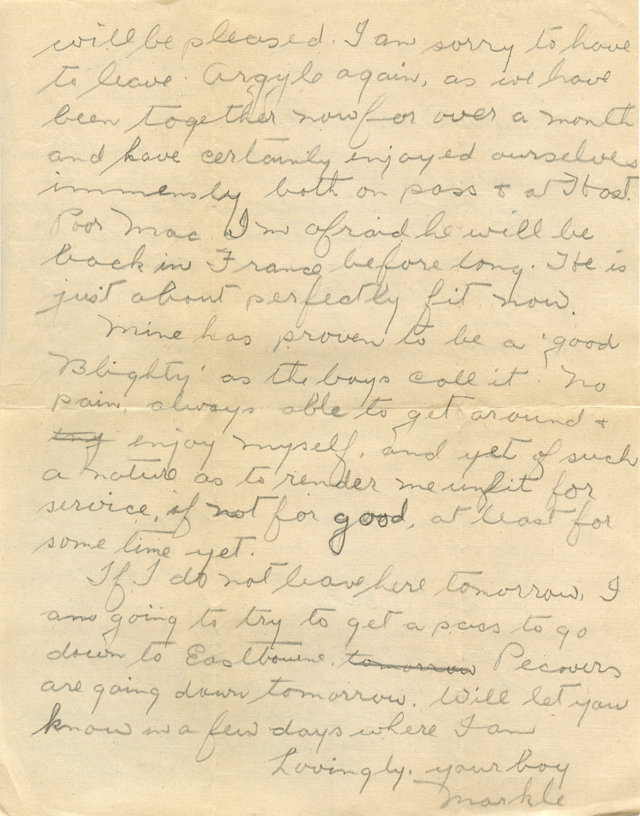 will be pleased. I am sorry to have
to leave Argyle again, as we have
been together now for over a month
and have certainly enjoyed ourselves
immensly both on pass & at Host.
Poor Mac I'm afraid he will be
back in France before long. He is
just about perfectly fit now.
Mine has proven to be a 'good
Blighty' as the boys call it. No
pain, always able to get around &
enjoy myself, and yet of such
a nature as to render me unfit for
service, if not for good, at least for
some time yet.
If I do not leave here tomorrow, I
am going to try to get a pass to go
down to Eastbourne. tomorrow Pecovers
are going down tomorrow. Will let you
know in a few days where I am
Lovingly, your boy
Markle